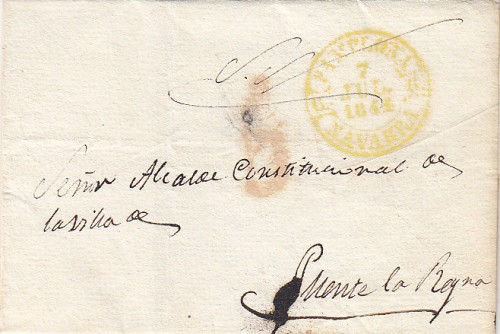 PAMPLONA
7
JUL
1844
NAVARRA
Señor Alcalde Constitucional de
la villa de
Puente la Reyna